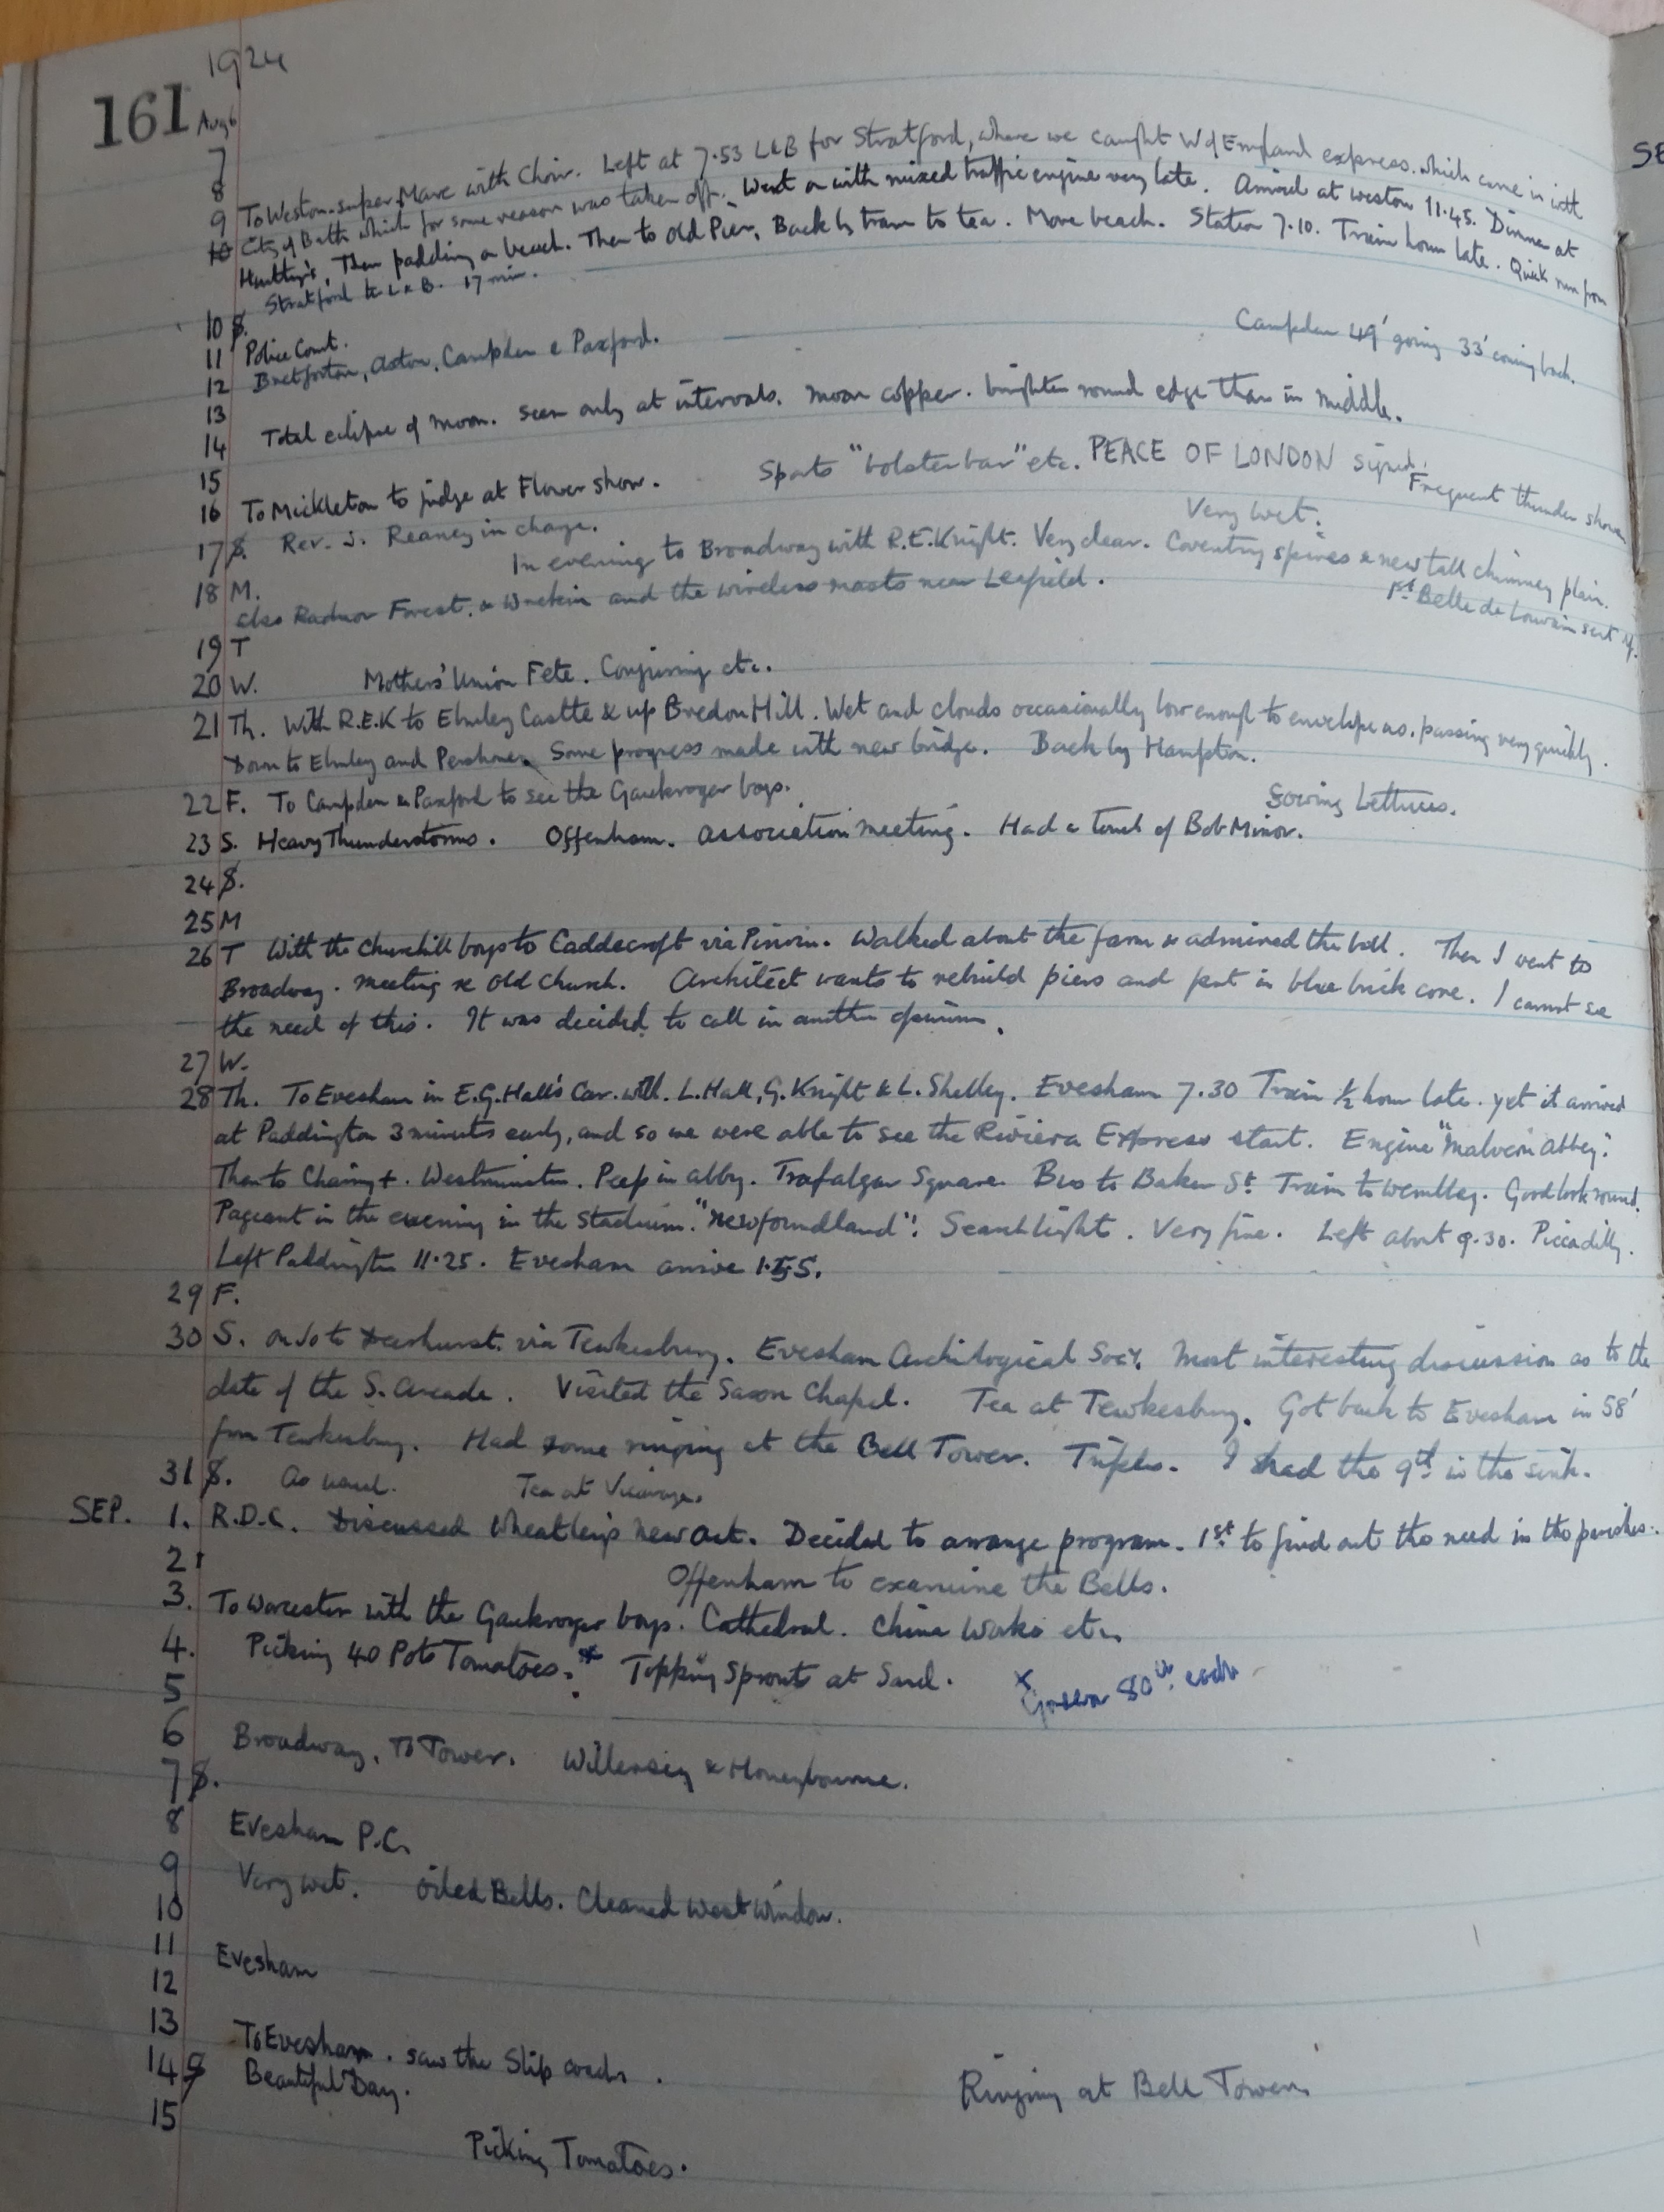 1924
161
Aug 6
7
8
9 To Weston-super-Mare with Choir. Left at 7.53 L&B for Stratford, where we caught W of England express. which came in with
10 City of Bath which for some reason was taken off. Went on with mixed traffic engine very late. Arrived at Weston 11.45. Dinner at
Huntley's. Then paddling on beach. Then to Old Pier. Back by tram to tea. More beach. Station 7.10. Train hour late. Quick run from
Stratford to L & B. 17 min.
10 S.
11 Police Court.
12 Bretforton, Aston, Campden & Paxford. Campden 49' going 33' coming back.
13
14 Total eclipse of moon. seen only at intervals. moon copper. brighter round edge than in middle.
15
16 To Mickleton to judge at Flower show. Sports "bolster bar" etc. PEACE OF LONDON signed. Frequent thunder showers
17 S. Rev. J. Reaney in charge. Very wet.
18 M. In evening to Broadway with R.E.Knight. Very clear. Coventry spires & new tall chimney plain.
also Radnor Forest, & Wrekin and the wireless masts near Leafield. 1st Belle de Louvain sent off.
19 T
20 W. Mothers' Union Fete. Conjuring etc.
21 Th. With R.E.K to Elmley Castle & up Bredon Hill. Wet and clouds occasionally low enough to envelope us. passing very quickly.
Down to Elmley and Pershore. Some progress made with new bridge. Back by Hampton.
22 F. To Campden & Paxford to see the Gaukroger boys. Sowing Lettuces.
23 S. Heavy Thunderstorms. Offenham. Association meeting. Had a touch of Bob Minor.
24 S.
25 M
26 T With the Churchill boys to Caddecroft via Pinvin. Walked about the farm & admired the bull. Then I went to
Broadway. meeting re old church. Architect wants to rebuild piers and put in blue brick core. I cannot see
the need of this. It was decided to call in another opinion.
27 W.
28 Th. To Evesham in E.G.Hall's Car. with. L.Hall, G.Knight & L. Shelley. Evesham 7.30 Train ½ hour late. yet it arrived
at Paddington 3 minutes early, and so we were able to see the Riviera Express start. Engine "Malvern Abbey".
Then to Charing +. Westminster. Peep in abby. Trafalgar Square. Bus to Baker St. Train to Wembley. Good look round.
Pageant in the evening in the Stadium. "Newfoundland". Searchlight. Very fine. Left about 9.30. Piccadilly.
Left Paddington 11.25. Evesham arrive
29 F.
30 S. to Deerhurst. via Tewkesbury. Evesham Archilogical Socy. Most interesting discussion as to the
date of the S. Arcade. Visited the Saxon Chapel. Tea at Tewkesbury. Got back to Evesham in 58'
from Tewkesbury. Had some ringing at the Bell Tower. Triples. I had the 9th in the sink.
31 S. As usual. Tea at Vicarage.
SEP. 1. R.D.C. Discussed Wheatley's new act. Decided to arrange program. 1st to find out the need in the parishes.
2 Offenham to examine the Bells.
3. To Worcester with the Gaukroger boys. Cathedral. China Works etc.
4. Picking 40 Pots Tomatoes. * Topping Sprouts at Sand. x Gross 80lb. each
5
6 Broadway. To Tower. Willersey & Honeybourne.
7 S.
8 Evesham P.C.
9 Very wet. Oiled Bells. Cleaned West Window.
10
11 Evesham
12
13 To Evesham. saw the Slip coach.
14 S Beautiful Day. Ringing at Bell Tower.
15 Picking Tomatoes.